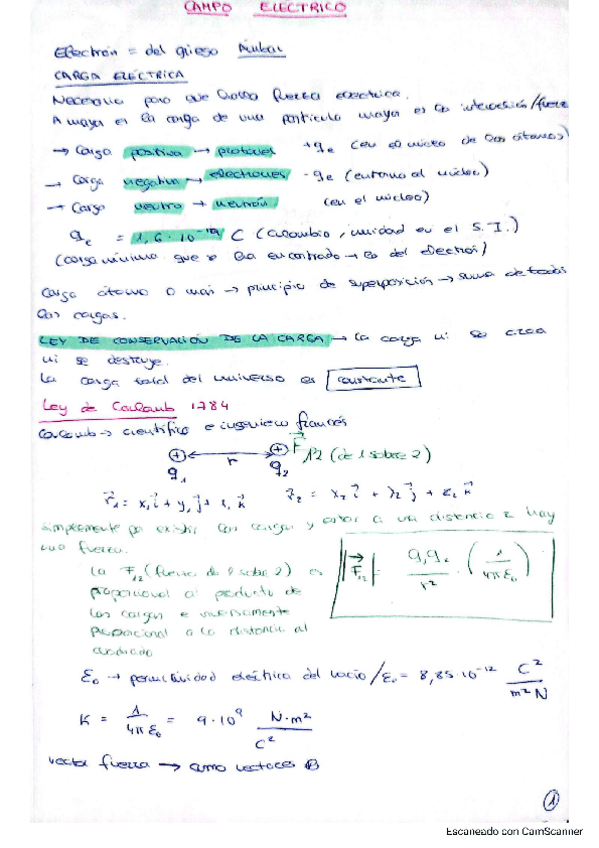 CAMPO ELECTRICO
Electrón = del griego Ámbar
CARGA ELÉCTRICA
Necesario para que haya fuerza eléctrica.
A mayor es la carga de una partícula mayor es la interacción/fuerza
→ Carga positiva → protones +qe (en el núcleo de los átomos)
→ Carga negativa → electrones -qe (entorno al núcleo)
→ Carga neutra → neutrón (en el núcleo)
qe = 1,6 · 10⁻¹⁹ C (Culombio, unidad en el S.I.)
(carga mínima que se ha encontrado → es del electrón)
Carga átomo o más → principio de superposición → suma de todas
las cargas.
LEY DE CONSERVACIÓN DE LA CARGA → la carga ni se crea
ni se destruye.
La carga total del universo es constante
Ley de Coulomb 1784
Coulomb → científico e ingeniero francés
r F 12 (de 1 sobre 2)
q₁ q₂
r₁ = x₁i + y₁j + z₁k r₂ = x₂i + y₂j + z₂k
simplemente por existir las cargas y estar a una distancia r hay
una fuerza.
La F₁₂ (fuerza de 1 sobre 2) es
proporcional al producto de
las cargas e inversamente
proporcional a la distancia al
cuadrado
|F₁₂| = q₁q₂ / r² · (1 / 4πε₀)
ε₀ → permitividad eléctrica del vacío / ε₀ = 8,85·10⁻¹² C² / m²N
K = 1 / 4πε₀ = 9·10⁹ N·m² / C²
vector fuerza → como vectores
1
Escaneado con CamScanner